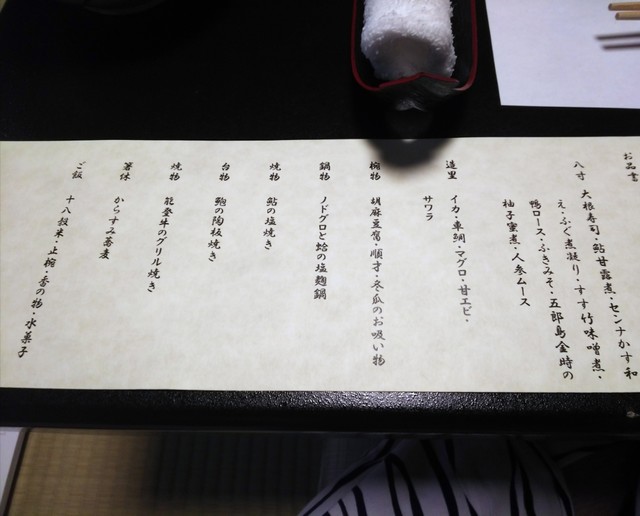 お品書
八寸 大根寿司・鮎甘露煮・センナかす和
え・ふぐ煮凝り・すす竹味噌煮・
鴨ロース・ふきみそ・五郎島金時の
柚子蜜煮・人参ムース
造里 イカ・車鯛・マグロ・甘エビ・
サワラ
椀物 胡麻豆腐・順才・冬瓜のお吸い物
鍋物 ノドグロと蛤の塩麹鍋
焼物 鮎の塩焼き
台物 鮑の陶板焼き
焼物 能登牛のグリル焼き
箸休 からすみ蕎麦
ご飯 十八穀米・止椀・香の物・水菓子